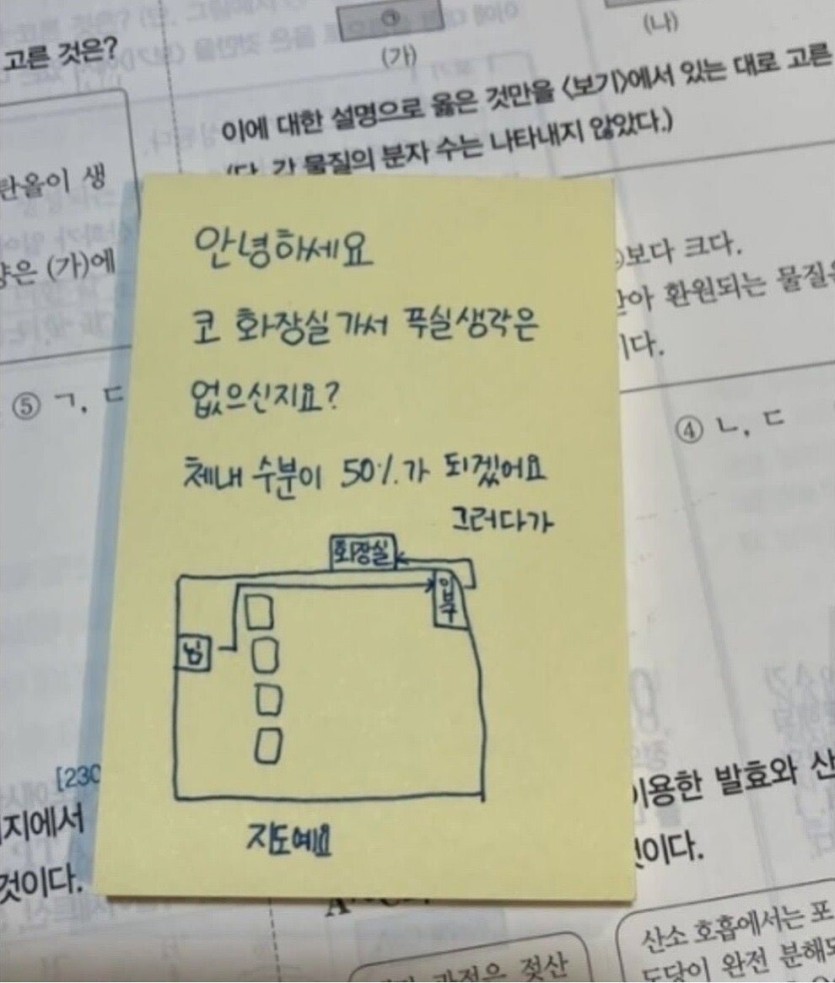 고른 것은?
(가)
(나)
이에 대한 설명으로 옳은 것만을 <보기>에서 있는 대로 고른
(단, 각 물질의 분자 수는 나타내지 않았다.)
탄올이 생
양은 (가)에
⑤ ㄱ, ㄷ
보다 크다.
아 환원되는 물질은
이다.
④ ㄴ, ㄷ
안녕하세요
코 화장실가서 푹실생각은
없으신지요?
체내 수분이 50%가 되겠어요
그러다가
화장실
입구
님
지도예요
[230
지에서
것이다.
이용한 발효와 산
것이다.
산소 호흡에서는 포
도당이 완전 분해되
과정은 젖산